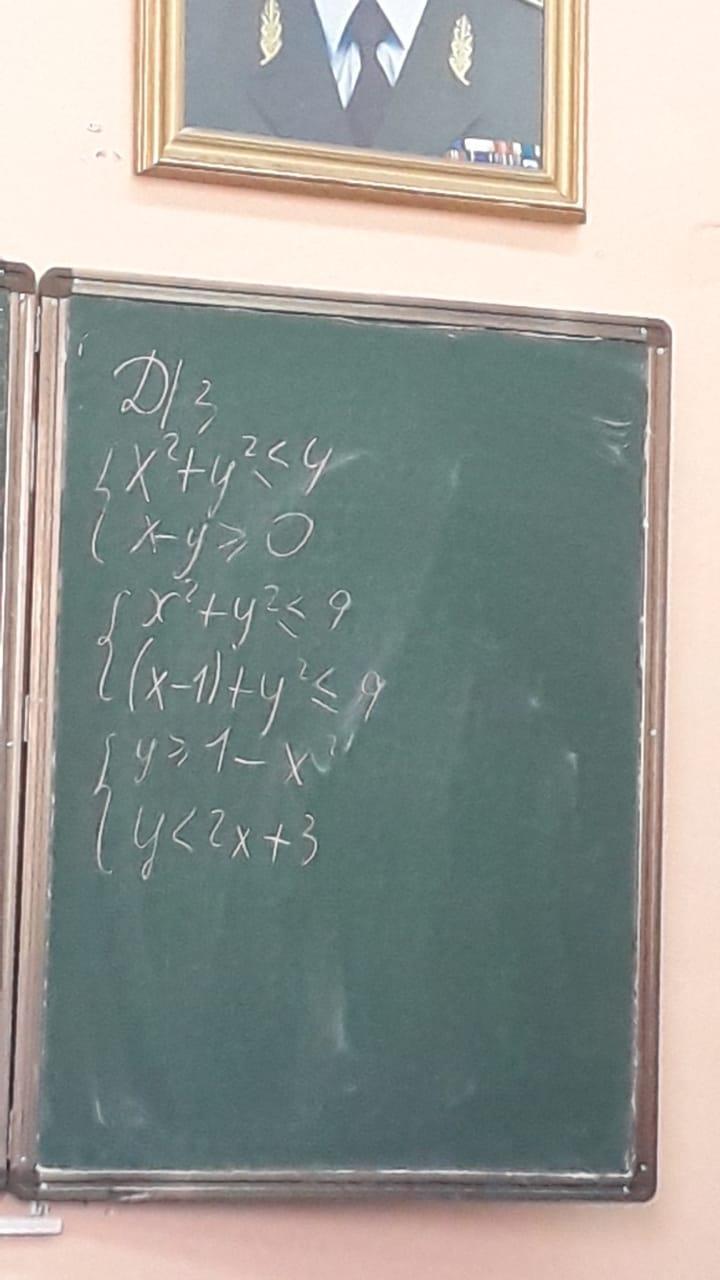 Д/з
{ x² + y² ≤ y
{ x - y ≥ 0
{ x² + y² ≤ 9
{ (x-1) + y² ≤ 9
{ y ≥ 1 - x²
{ y < 2x + 3